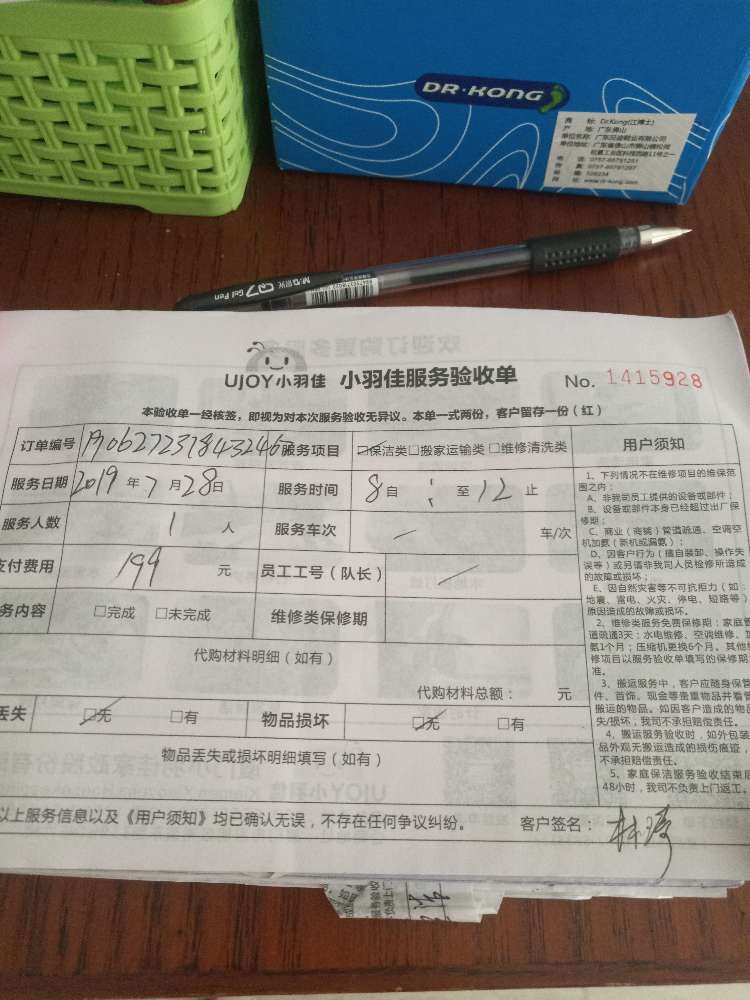 DR·KONG
商 标: Dr.Kong(江博士)
产 地: 广东佛山
www.dr-kong.com
M&G 晨光 Q7 Gel Pen
欢迎订购更多服务
UJOY小羽佳 小羽佳服务验收单 No. 1415928
本验收单一经核签，即视为对本次服务验收无异议。本单一式两份，客户留存一份（红）
订单编号 服务项目 ☑保洁类□搬家运输类□维修清洗类 用户须知
服务日期 2019 年 7 月 28 日 服务时间 8 自 : 至 12 止
服务人数 1 人 服务车次 — 车/次
支付费用 199 元 员工工号（队长） —
务内容 □完成 □未完成 维修类保修期
代购材料明细（如有）
代购材料总额： 元
丢失 ☑无 □有 物品损坏 ☑无 □有
物品丢失或损坏明细填写（如有）
以上服务信息以及《用户须知》均已确认无误，不存在任何争议纠纷。 客户签名：
1、下列情况不在维修项目的维保范
围之内：
A、非我司员工提供的设备或部件；
B、设备或部件本身已经超过出厂保
修期；
C、商业（商铺）管道疏通、空调空
机加氨（新机或漏氨）；
D、因客户行为（擅自装卸、操作失
误等）或另请非我司人员检修所造成
的故障或损坏；
E、因自然灾害等不可抗拒力（如
地震、雷电、火灾、停电、短路等）
原因造成的故障或损坏。
2、维修类服务免费保修期：家庭管
道疏通3天；水电维修、空调维修、加
氨1个月；压缩机更换6个月。其他维
修项目以服务验收单填写的保修期
准。
3、搬运服务中，客户应随身保管
件、首饰、现金等贵重物品并看管
搬运的物品。如因客户造成的物品
失/损坏，我司不承担赔偿责任。
4、搬运服务验收时，如外包装
品外观无搬运造成的损伤痕迹，
不承担赔偿责任。
5、家庭保洁服务验收结束后
48小时，我司不负责上门返工。